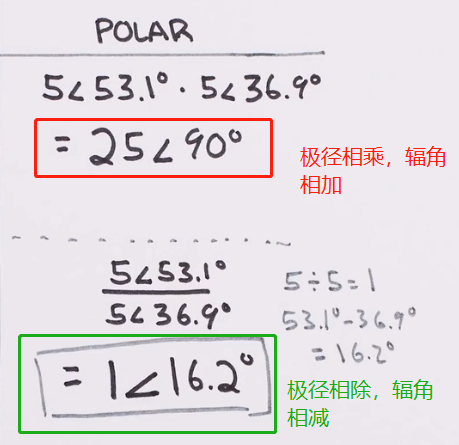 POLAR
5∠53.1° · 5∠36.9°
= 25∠90°
极径相乘，辐角
相加
5∠53.1°
5∠36.9°
5÷5=1
53.1°-36.9°
= 16.2°
= 1∠16.2°
极径相除，辐角
相减